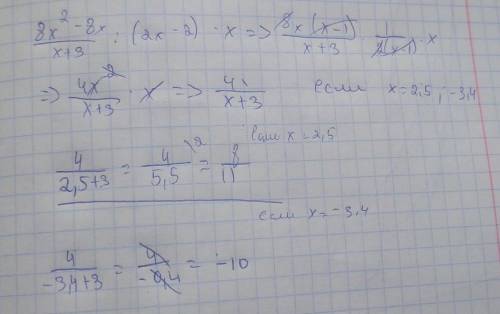 8x² - 8x / x+3 : (2x - 2) · x => 8x(x-1) / x+3 · 1 / 2(x-1) · x
=> 4x² / x+3 · x => 4 / x+3 если x=2,5 ; -3,4
если x = 2,5
4 / 2,5+3 = 4 / 5,5 \2 = 8 / 11
если x = -3,4
4 / -3,4+3 = 4 / -0,4 = -10